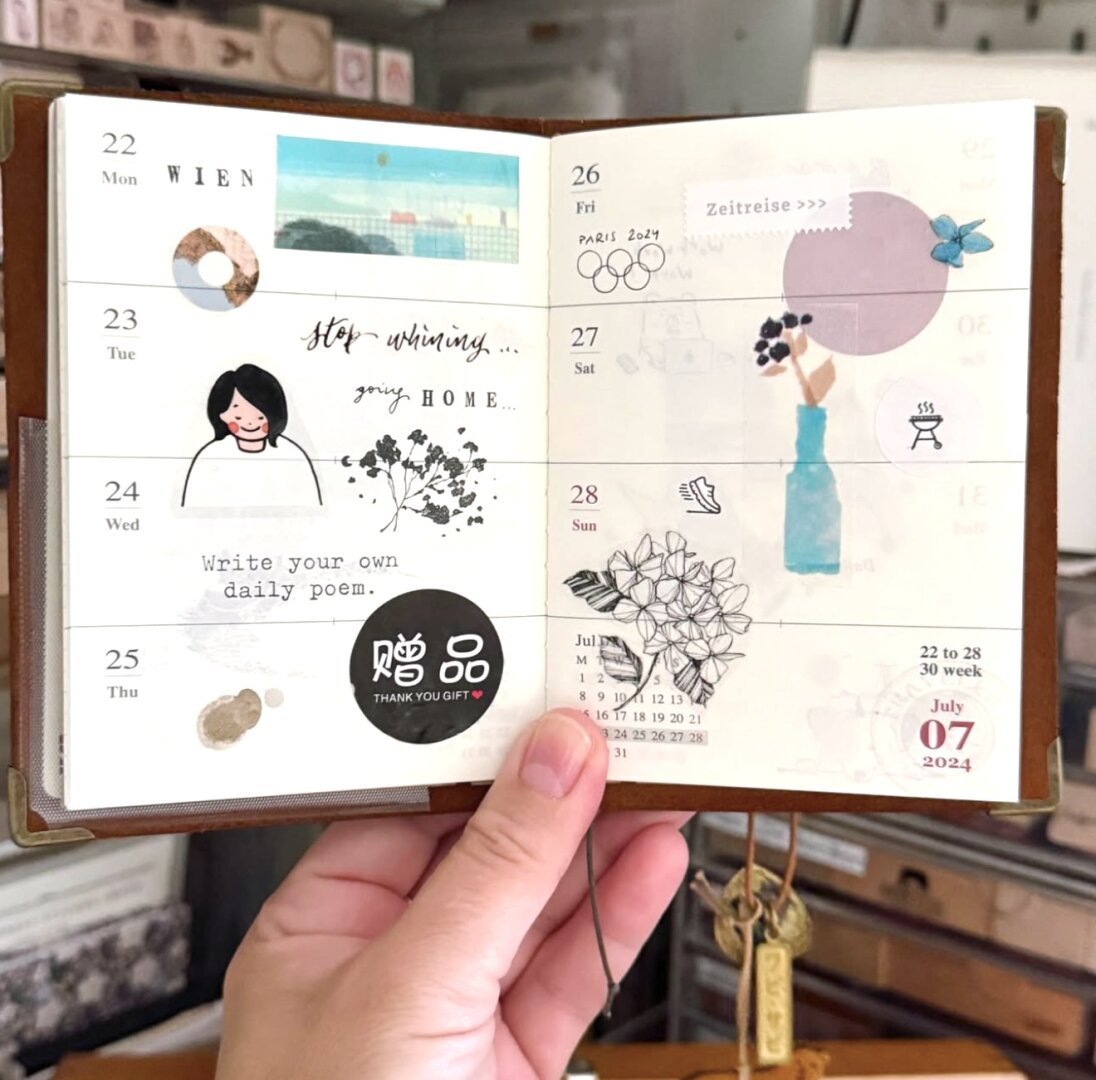 22
Mon
WIEN
23
Tue
stop whining...
going HOME...
24
Wed
Write your own
daily poem.
25
Thu
赠品
THANK YOU GIFT
26
Fri
Zeitreise >>>
PARIS 2024
27
Sat
28
Sun
Jul
M T W S
1 2 5
8 9 10 11 12 13 14
16 17 18 19 20 21
24 25 26 27 28
31
22 to 28
30 week
July
07
2024